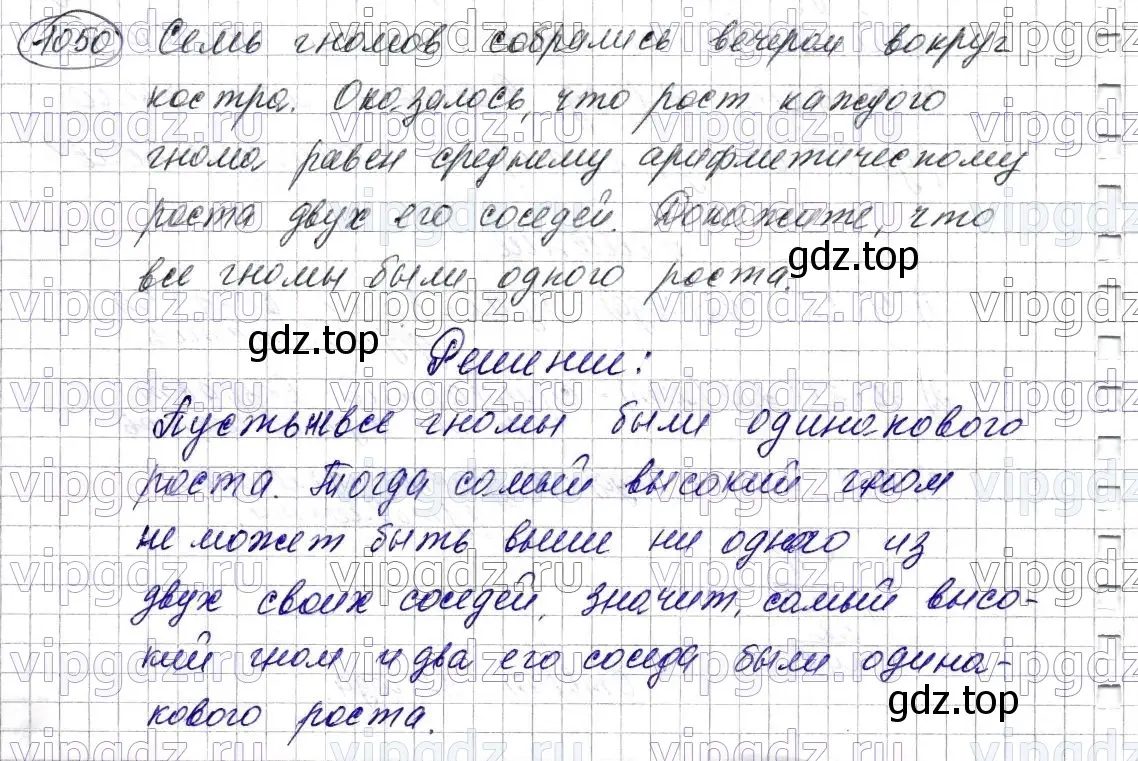 1050 Семь гномов собрались вечером вокруг
костра. Оказалось, что рост каждого
гнома равен среднему арифметическому
роста двух его соседей. Докажите, что
все гномы были одного роста.
gdz.top
gdz.top
Решение:
Пусть не все гномы были одинакового
роста. Тогда самый высокий гном
не может быть выше ни одного из
двух своих соседей, значит, самый высо-
кий гном и два его соседа были одина-
кового роста.
gdz.top
vipgdz.ru